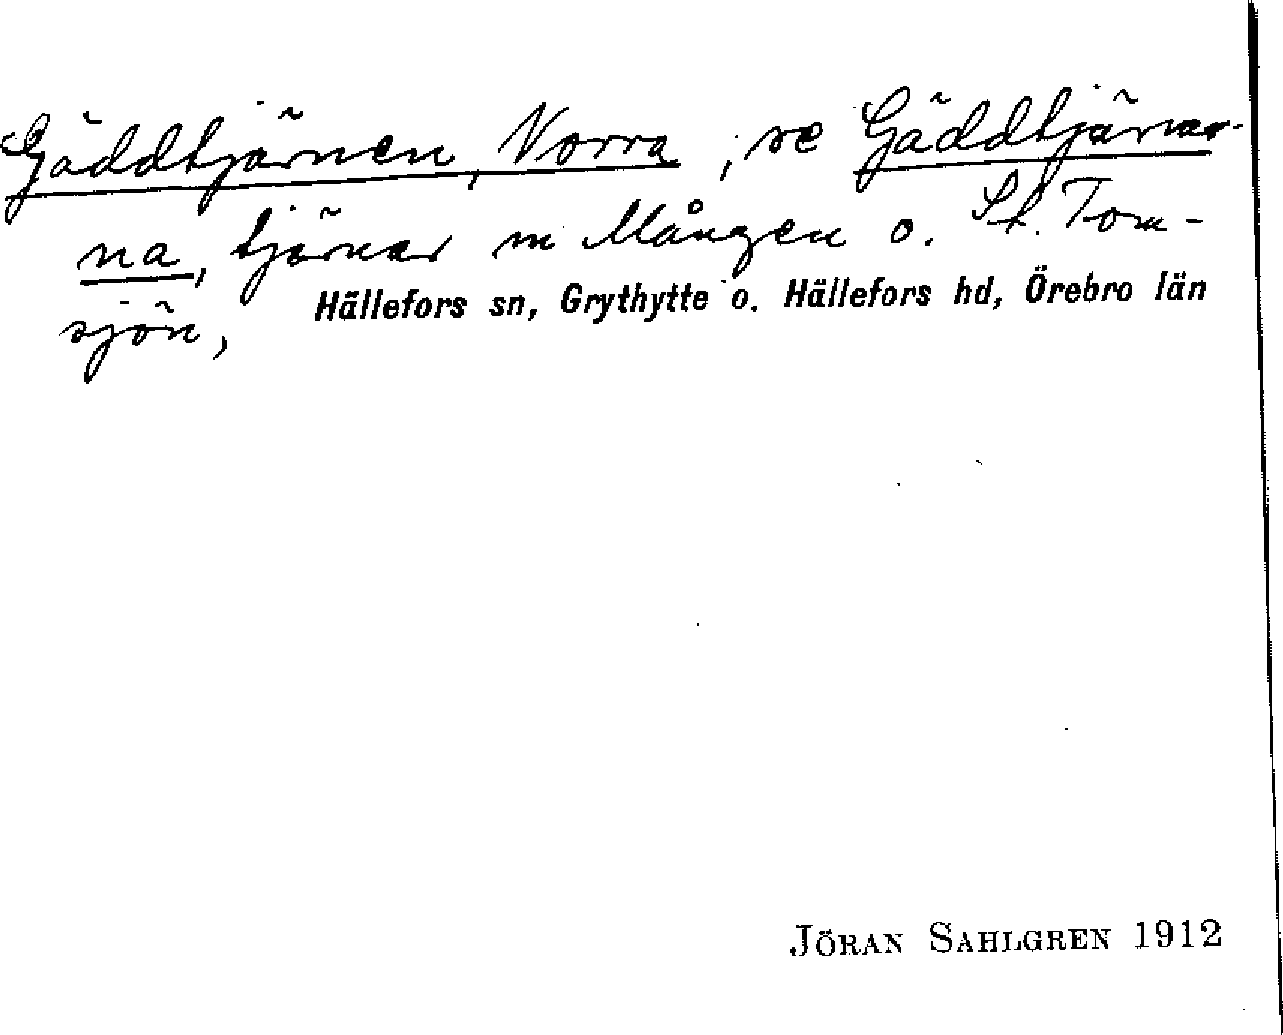 Gäddtjärnen, Norra ; se Gäddtjärnar-
na, tjärnar m Mången o. St. Tom-
sjön, Hällefors sn, Grythytte o. Hällefors hd, Örebro län
JÖRAN SAHLGREN 1912